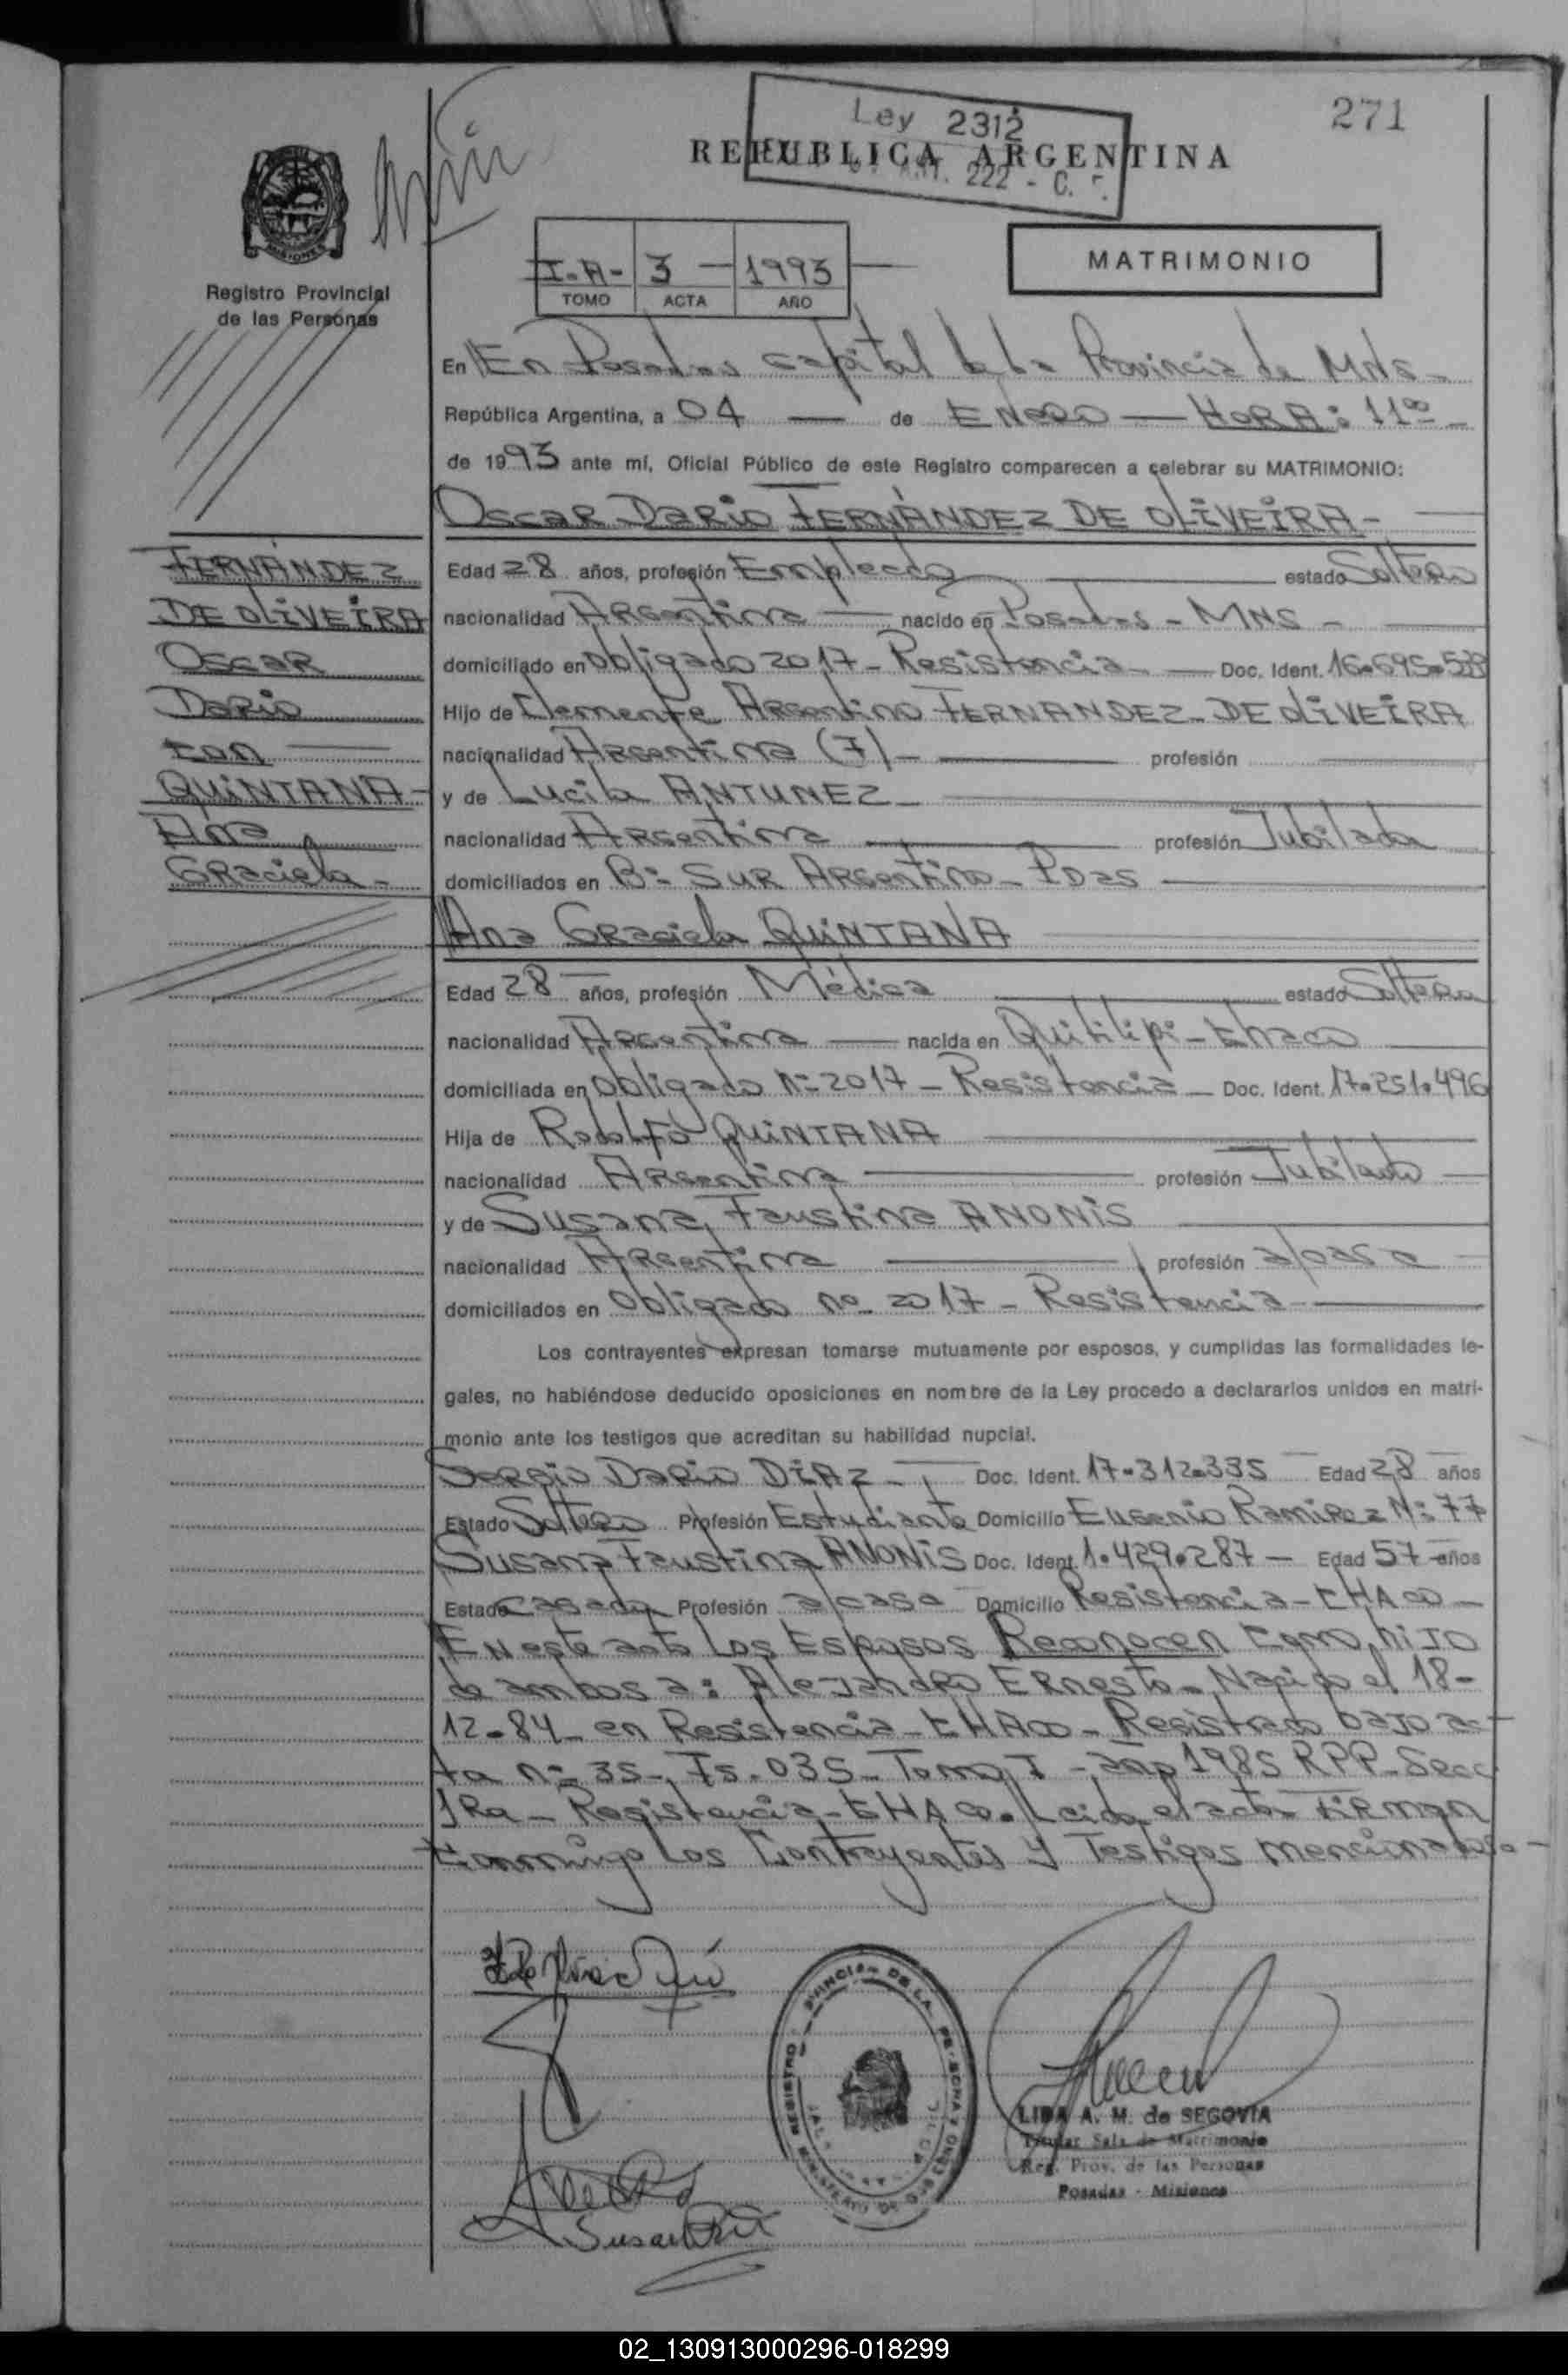 271
Ley 2312
REPUBLICA ARGENTINA
ART. 222 - C.
MISIONES
Registro Provincial
de las Personas
I-A- 3 - 1993
TOMO ACTA AÑO
MATRIMONIO
En En Posadas capital de la Provincia de Mns-
República Argentina, a 04 — de ENERO — HORA: 11oo -
de 1993 ante mí, Oficial Público de este Registro comparecen a celebrar su MATRIMONIO:
Oscar Dario FERNÁNDEZ DE OLIVEIRA-
FERNÁNDEZ
DE OLIVEIRA
Oscar
Dario
con
QUINTANA-
Ana
Graciela-
Edad 28 años, profesión Empleado estado Soltero
nacionalidad Argentina — nacido en Posadas - MNS -
domiciliado en Obligado 2017 - Resistencia - Doc. Ident. 16.695.538
Hijo de Clemente Argentino FERNANDEZ DE OLIVEIRA
nacionalidad Argentina (F) - profesión
y de Lucila ANTUNEZ-
nacionalidad Argentina profesión Jubilada
domiciliados en B: Sur Argentino - Pdas
Ana Graciela QUINTANA
Edad 28 años, profesión Médica estado Soltera
nacionalidad Argentina — nacida en Quitilipi - Chaco
domiciliada en Obligado N: 2017 - Resistencia - Doc. Ident. 17.251.496
Hija de Rodolfo QUINTANA
nacionalidad Argentina profesión Jubilado
y de Susana Faustina ANONIS
nacionalidad Argentina profesión a/casa
domiciliados en Obligado no 2017 - Resistencia -
Los contrayentes expresan tomarse mutuamente por esposos, y cumplidas las formalidades le-
gales, no habiéndose deducido oposiciones en nombre de la Ley procedo a declararlos unidos en matri-
monio ante los testigos que acreditan su habilidad nupcial.
Sergio Dario DIAZ - Doc. Ident. 17.312.335 Edad 28 años
Estado Soltero Profesión Estudiante Domicilio Eugenio Ramirez N: 77
Susana Faustina ANONIS Doc. Ident. 1.429.287 - Edad 57 años
Estado casada Profesión a/casa Domicilio Resistencia - CHACO -
En este acto los Esposos Reconocen como hijo
de ambos a: Alejandro Ernesto - Nacido el 18-
12-84 en Resistencia - CHACO - Registrado bajo ac-
ta n: 35 - Fs. 035 - Tomo I - año 1985 RPP - Secc
1Ra - Resistencia - CHACO. Leida el acta FIRman
Conmigo los Contrayentes y Testigos mencionados -
LIDA A. M. de SEGOVIA
Titular Sala de Matrimonio
Reg. Prov. de las Personas
Posadas - Misiones
02_130913000296-018299